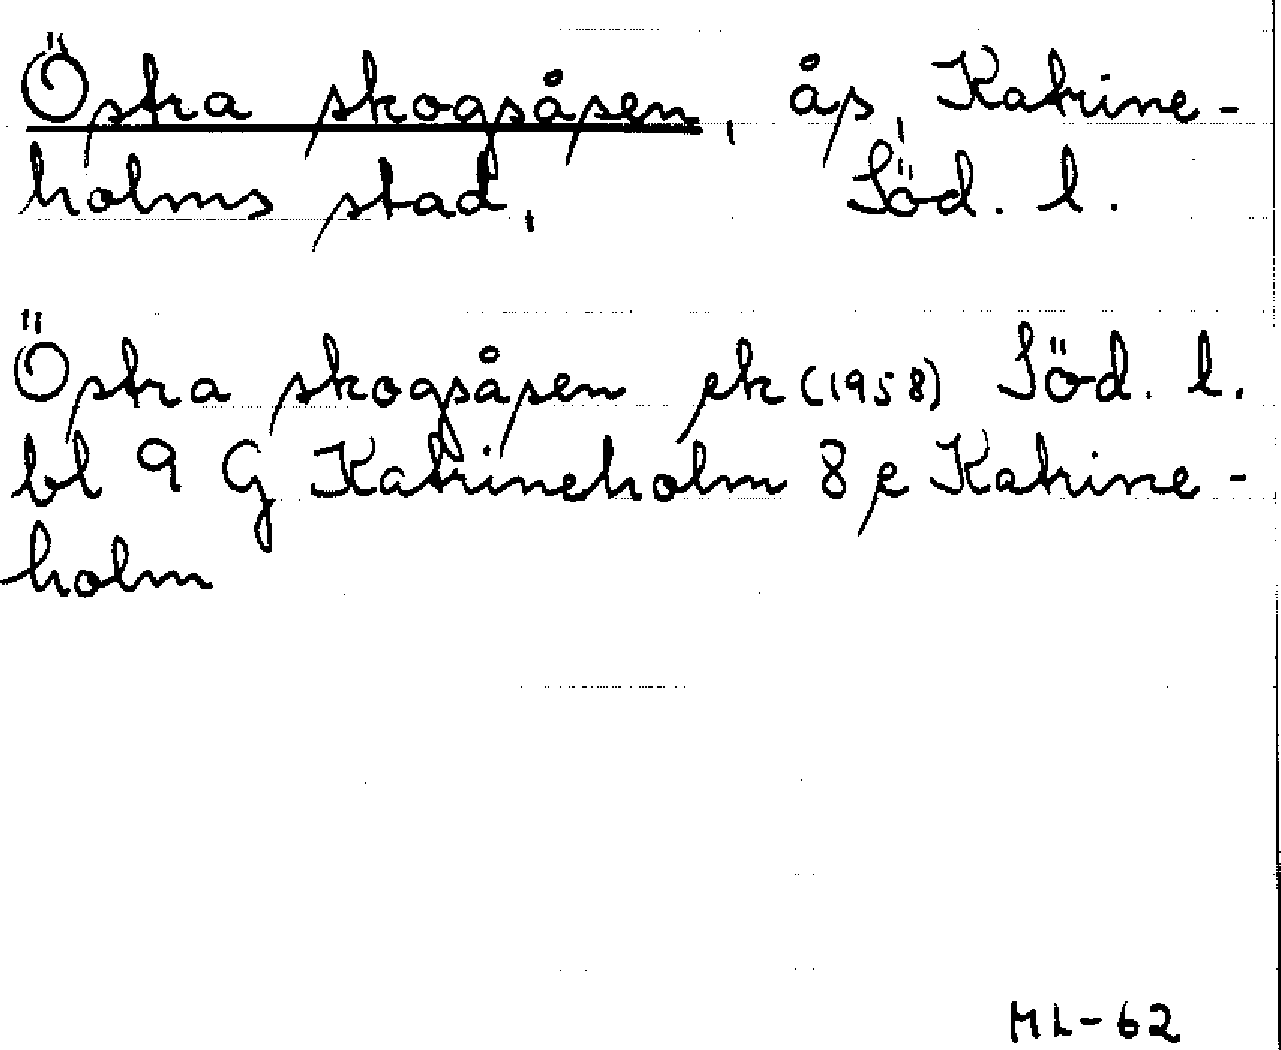 Östra skogsåsen, ås, Katrine-
holms stad, Söd. l.
Östra skogsåsen ek (1958) Söd. l.
bl 9 G Katrineholm 8 e Katrine-
holm
ML-62